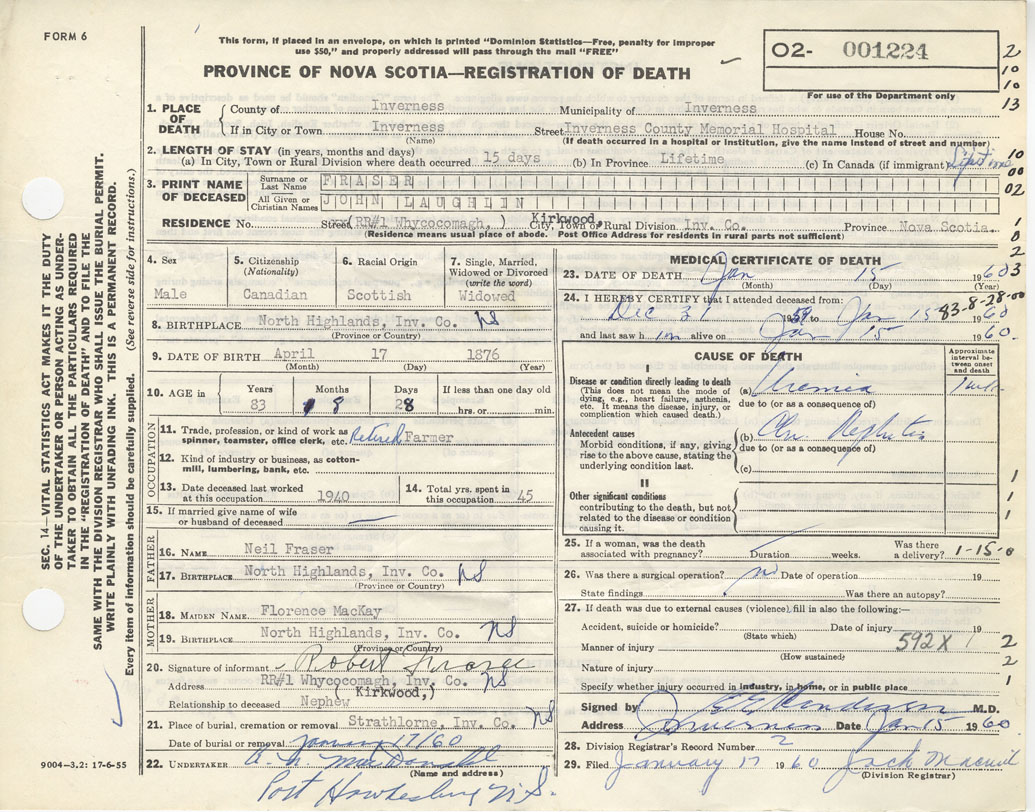 FORM 6
This form, if placed in an envelope, on which is printed "Dominion Statistics—Free, penalty for improper
use $50," and properly addressed will pass through the mail "FREE"
PROVINCE OF NOVA SCOTIA—REGISTRATION OF DEATH
02- 001224
For use of the Department only
2
10
10
13
1. PLACE OF DEATH { County of Inverness Municipality of Inverness
If in City or Town Inverness Street Inverness County Memorial Hospital House No.
(Name) (If death occurred in a hospital or Institution, give the name instead of street and number)
2. LENGTH OF STAY (in years, months and days)
(a) In City, Town or Rural Division where death occurred 15 days (b) In Province Lifetime (c) In Canada (if immigrant) Lifetime
10
00
02
3. PRINT NAME OF DECEASED { Surname or Last Name FRASER
All Given or Christian Names JOHN LAUGHLIN
RESIDENCE No. Street (RR#1 Whycocomagh, Kirkwood,) City, Town or Rural Division Inv. Co. Province Nova Scotia.
(Residence means usual place of abode. Post Office Address for residents in rural parts not sufficient)
4. Sex
Male
5. Citizenship
(Nationality)
Canadian
6. Racial Origin
Scottish
7. Single, Married, Widowed or Divorced
(write the word)
Widowed
8. BIRTHPLACE North Highlands, Inv. Co. NS
(Province or Country)
9. DATE OF BIRTH April 17 1876
(Month) (Day) (Year)
10. AGE in Years 83 Months 8 Days 28 If less than one day old hrs. or min.
OCCUPATION
11. Trade, profession, or kind of work as spinner, teamster, office clerk, etc. Retired Farmer
12. Kind of industry or business, as cotton-mill, lumbering, bank, etc.
13. Date deceased last worked at this occupation 1940
14. Total yrs. spent in this occupation 45
15. If married give name of wife or husband of deceased —
FATHER
16. NAME Neil Fraser
17. BIRTHPLACE North Highlands, Inv. Co. NS
(Province or Country)
MOTHER
18. MAIDEN NAME Florence MacKay
19. BIRTHPLACE North Highlands, Inv. Co. NS
(Province or Country)
20. Signature of informant Robert Fraser
Address RR#1 Whycocomagh, Inv. Co. NS
(Kirkwood,)
Relationship to deceased Nephew
21. Place of burial, cremation or removal Strathlorne, Inv. Co. NS
Date of burial or removal January 17/60
22. UNDERTAKER MacDonald
(Name and address)
Port Hawkesbury N.S.
9004—3.2: 17-6-55
MEDICAL CERTIFICATE OF DEATH
23. DATE OF DEATH Jan 15 1960
(Month) (Day) (Year)
24. I HEREBY CERTIFY that I attended deceased from:
Dec 31 1959 to Jan 15 1960
83-8-28-00
and last saw him alive on Jan 15 1960.
CAUSE OF DEATH
Approximate interval between onset and death
I
Disease or condition directly leading to death
(This does not mean the mode of dying, e.g., heart failure, asthenia, etc. It means the disease, injury, or complication which caused death.)
(a) Uremia 1 wk.
due to (or as a consequence of)
Antecedent causes
Morbid conditions, if any, giving rise to the above cause, stating the underlying condition last.
(b) Chr Nephritis
due to (or as a consequence of)
(c)
II
Other significant conditions contributing to the death, but not related to the disease or condition causing it.
25. If a woman, was the death associated with pregnancy? Duration weeks. Was there a delivery? 1-15-0
26. Was there a surgical operation? no Date of operation 19
State findings Was there an autopsy?
27. If death was due to external causes (violence), fill in also the following:—
Accident, suicide or homicide? Date of injury 19
(State which)
Manner of injury 592X
(How sustained)
Nature of injury
Specify whether injury occurred in industry, in home, or in public place
Signed by M.D.
Address Inverness Date Jan 15 1960
28. Division Registrar's Record Number 2
29. Filed January 17 1960 Jack
(Division Registrar)
SEC. 14—VITAL STATISTICS ACT MAKES IT THE DUTY
OF THE UNDERTAKER OR PERSON ACTING AS UNDER-
TAKER TO OBTAIN ALL THE PARTICULARS REQUIRED
IN THE "REGISTRATION OF DEATH" AND TO FILE THE
SAME WITH THE DIVISION REGISTRAR WHO SHALL ISSUE THE BURIAL PERMIT.
WRITE PLAINLY WITH UNFADING INK. THIS IS A PERMANENT RECORD.
Every item of information should be carefully supplied. (See reverse side for instructions.)